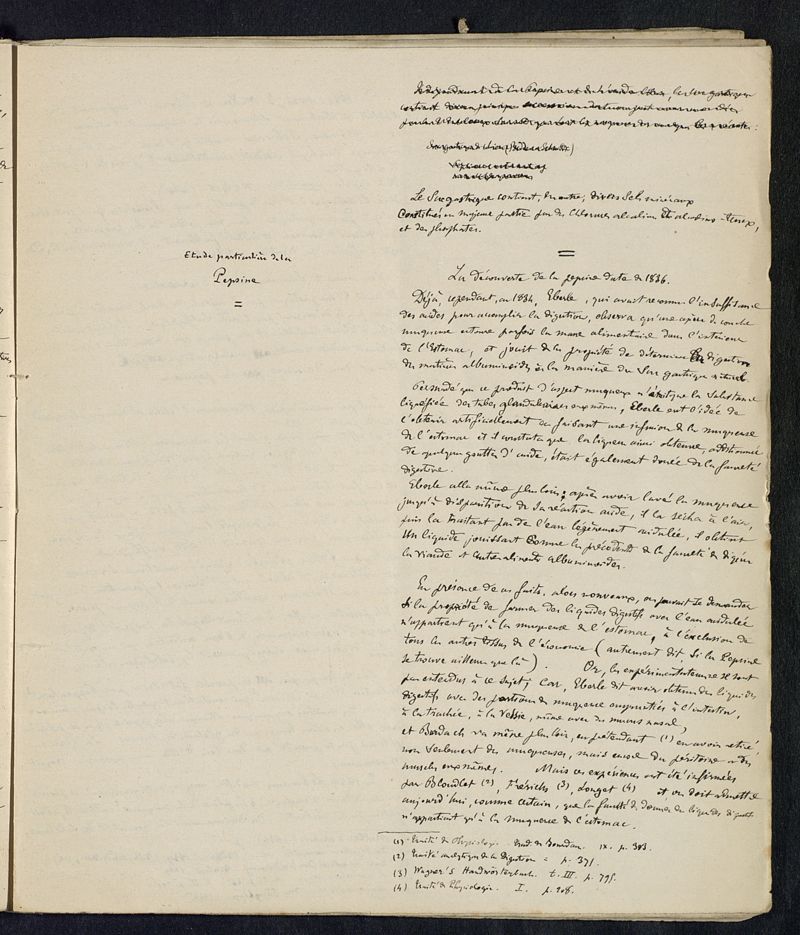 Le Suc gastrique contient, en outre, divers Sels minéraux
Constitués en majeure partie par des Chlorures alcalins et alcalins-terreux,
et des phosphates.
Etude particulière de la
Pepsine
La découverte de la pepsine date de 1836.
Déjà, cependant, en 1834, Eberle, qui avait reconnu l'insuffisance
des acides pour accomplir la digestion, observa qu'une espèce de couche
muqueuse entoure parfois la masse alimentaire dans l'intérieur
de l'Estomac, et jouit de la propriété de déterminer la digestion
des matières albuminoïdes à la manière du Suc gastrique naturel
Persuadé que ce produit d'aspect muqueux n'était que la Substance
liquéfiée des tubes glandulaires eux mêmes, Eberle eut l'idée de
l'obtenir artificiellement en faisant une infusion de la muqueuse
de l'estomac et il constata que la liqueur ainsi obtenue, additionnée
de quelques gouttes d'acide, était également douée de la faculté
digestive.
Eberle alla même plus loin; après avoir lavé la muqueuse
jusqu'à disparition de sa réaction acide, il la sécha à l'air,
puis la traitant par de l'eau légèrement acidulée, il obtint
un liquide jouissant comme les précédents de la faculté de digérer
la viande et autres aliments albuminoïdes.
En présence de ces faits, alors nouveaux, on pouvait se demander
Si la propriété de former des liquides digestifs avec l'eau acidulée
n'appartient qu'à la muqueuse de l'estomac, à l'exclusion de
tous les autres tissus de l'économie (autrement dit, Si la Pepsine
se trouve ailleurs que là). Or, les expérimentateurs ne sont
pas entendus à ce sujet; Car, Eberle dit avoir obtenu des liquides
digestifs avec des portions de muqueuse empruntées à l'intestin,
à la trachée, à la Vessie, même avec du mucus nasal,
et Burdach va même plus loin, en prétendant (1) en avoir retiré
non seulement des muqueuses, mais encore du péritoine et des
muscles eux mêmes. Mais ces expériences ont été infirmées
par Blondlot (2), Frérichs (3), Longet (4) et on doit admettre
aujourd'hui, comme certain, que la faculté de donner des liquides digestifs
n'appartient qu'à la muqueuse de l'estomac.
(1) Traité de Physiologie. trad. de Jourdan. IX. p. 313.
(2) Traité analytique de la Digestion = p. 371.
(3) Wagner's Handwörterbuch. t. III. p. 795.
(4) Traité de Physiologie. I. p. 208.